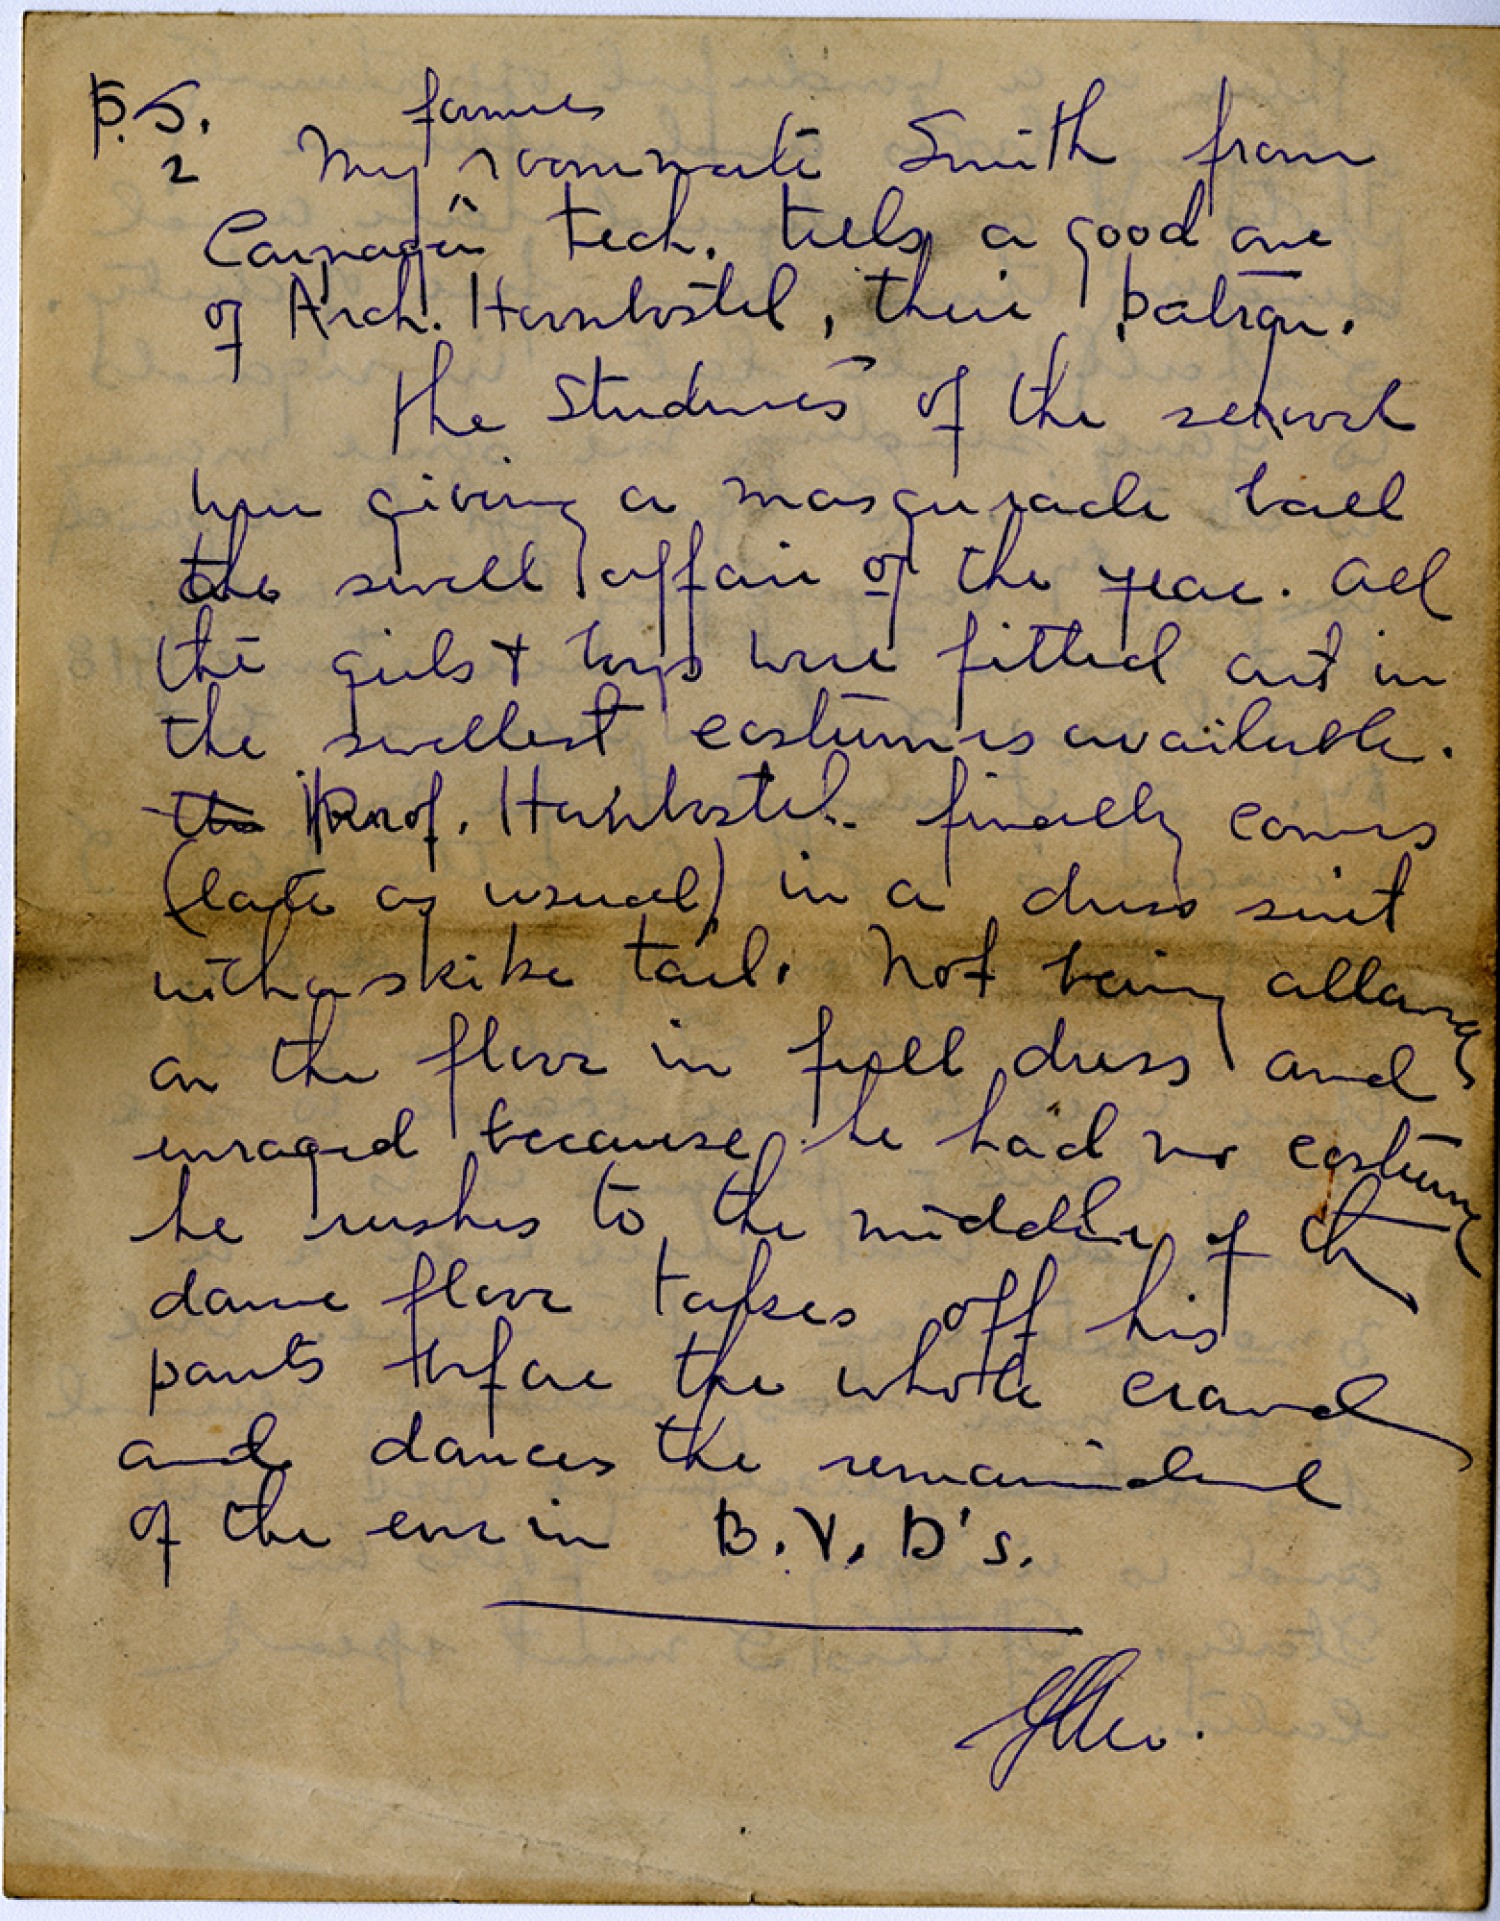 P.S.
2
former
My roommate Smith from
Carnagie Tech. tells a good one
of Arch. Hornbostel, their patron.
The students of the school
were giving a masqurade ball
the swell affair of the year. All
the girls + boys were fitted out in
the swellest costumes available.
the Prof. Hornbostel finally comes
(late as usual) in a dress suit
with a skike tail. Not being allowed
on the floor in full dress and
enraged because he had no costume
he rushes to the middle of the
dance floor takes off his
pants before the whole crowd
and dances the remainder
of the eve in B.V.D's.